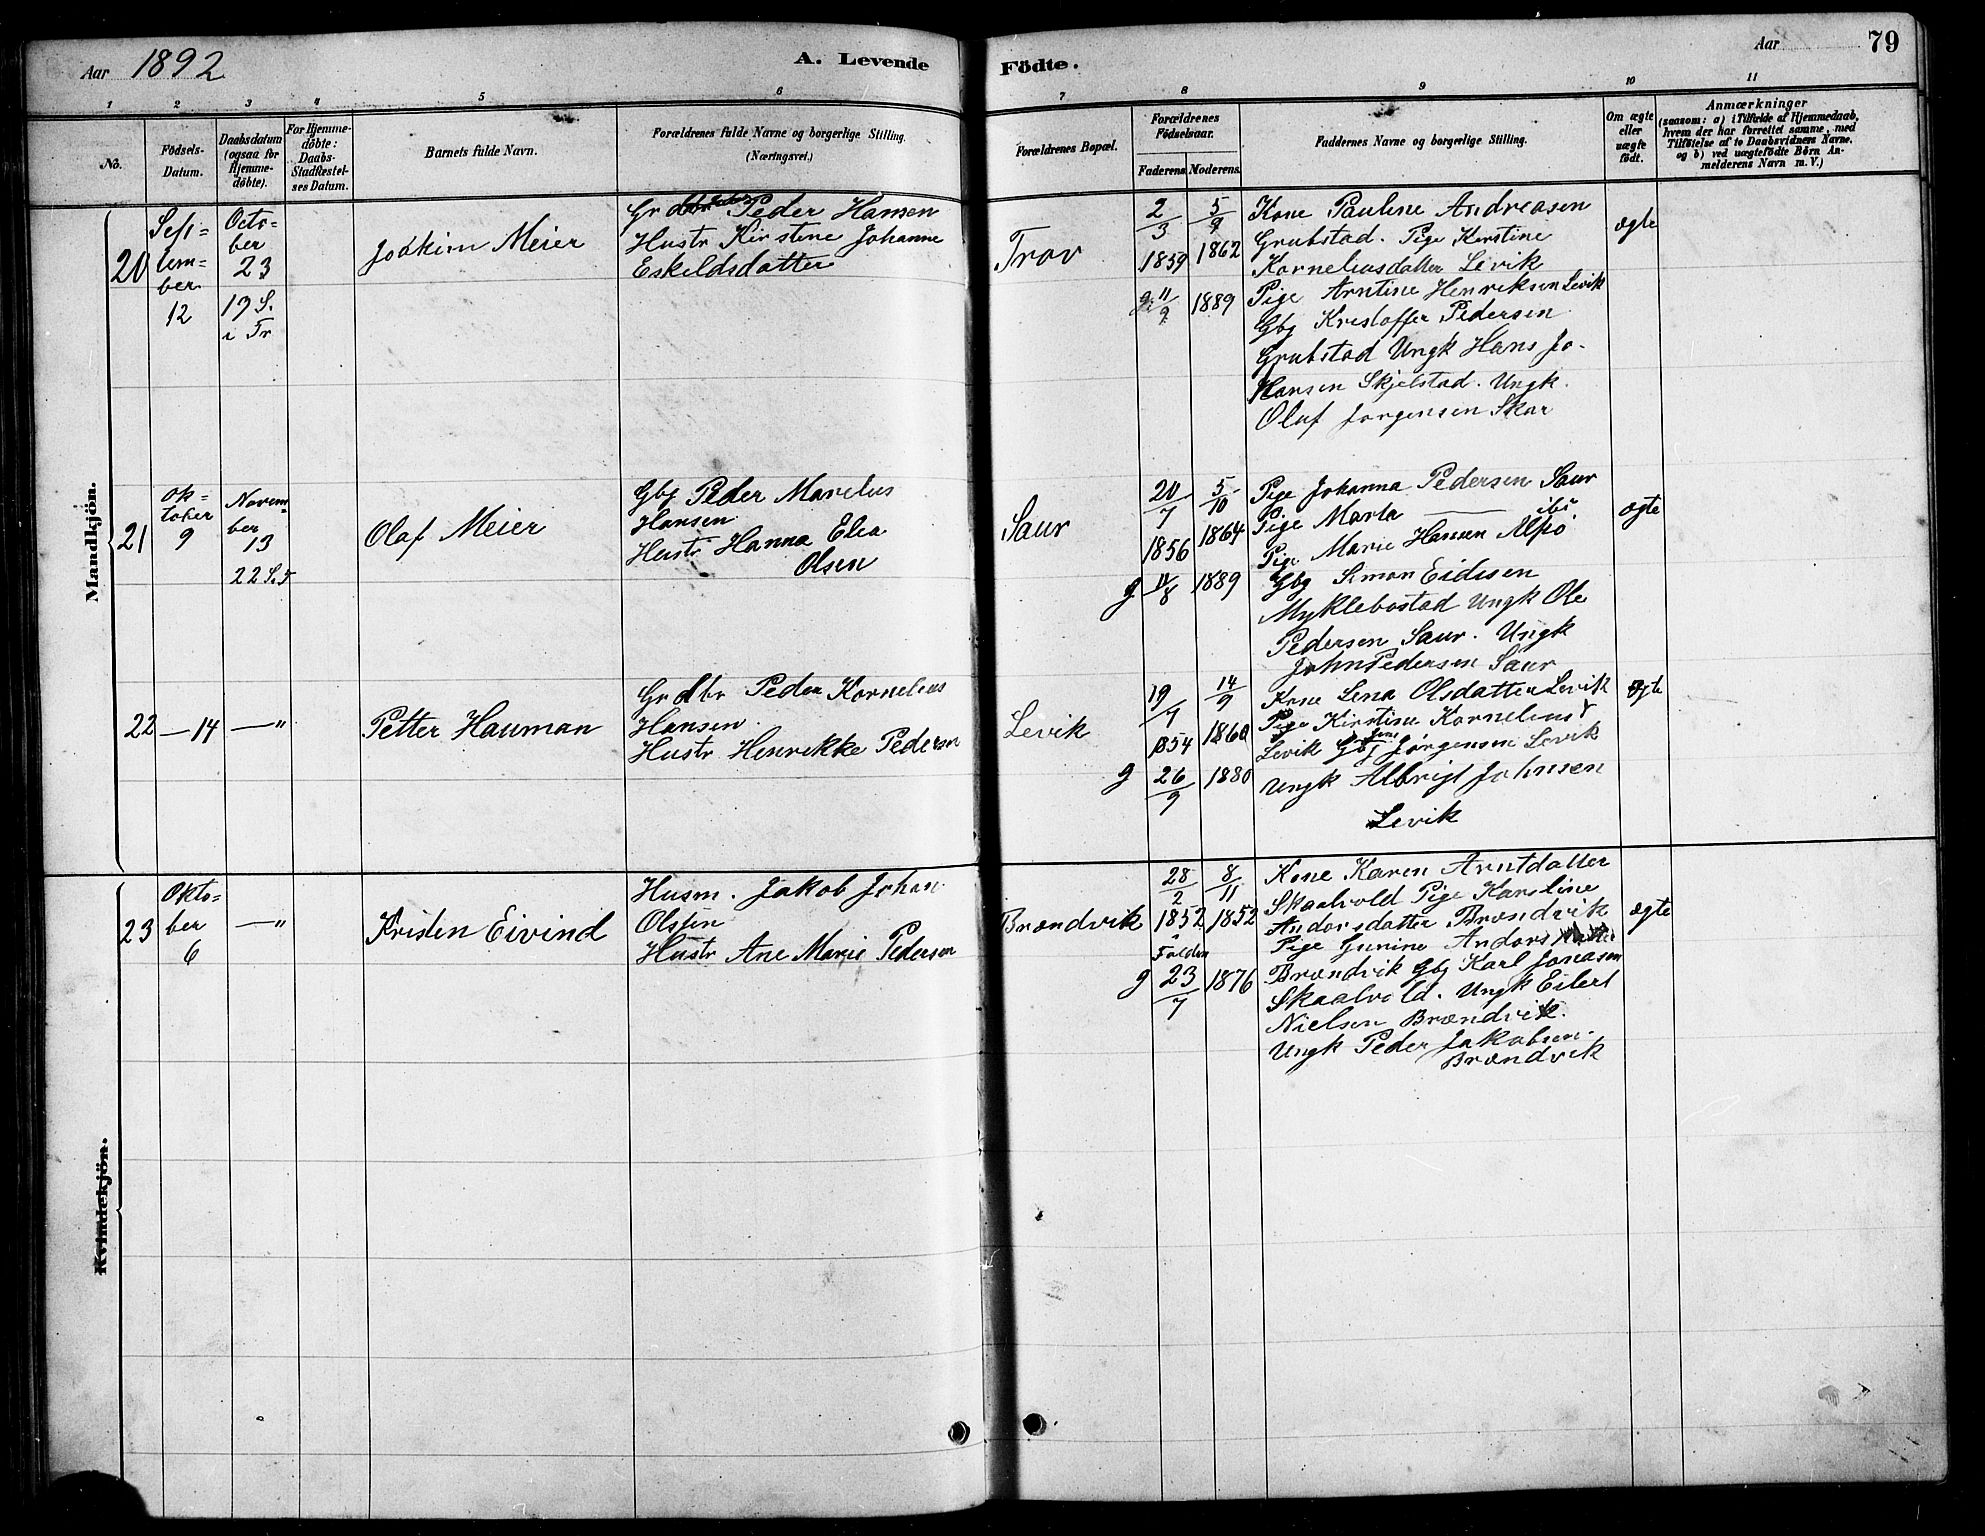 Aar 1892
A. Levende
Födte.
Aar
79
1 2 3 4 5 6 7 8 9 10 11
No.
Födsels-
Datum.
Daabsdatum
(ogsaa for
Hjemme-
döbte).
For Hjemme-
döbte:
Daabs-
Stadfæstel-
ses Datum.
Barnets fulde Navn.
Forældrenes fulde Navne og borgerlige Stilling.
(Næringsvei.)
Forældrenes Bopæl.
Forældrenes
Födselsaar.
Faderens. Moderens.
Faddernes Navne og borgerlige Stilling.
Om ægte
eller
uægte
födt.
Anmærkninger
(saasom: a) i Tilfælde af Hjemmedaab,
hvem der har forrettet samme, med
Tilföielse af to Daabsvidners Navne,
og b) ved uægtefödte Börn An-
melderens Navn m. V.)
Mandkjön.
20
Sep-
tem-
ber
12
Octo-
ber
23
19 S.
i Tr
Joakim Meier
Gr dbr Peder Hansen
Hustr Kirstine Johanne
Eskeldsdatter
Trov
2/3
1859
5/9
1862
g 11/9 1889
Kone Pauline Andreasen
Grubstad. Pige Kerstine
Korneliusdatter Levik
Pige Arntine Henriksen Levik
Gbj Kristoffer Pedersen
Grubstad Ungk Hans Jo-
Hansen Skjelstad. Ungk.
Oluf Jorgensen Skar
ægte
21
Ok-
tober
9
Novem-
ber
13
22 S.
Olaf Meier
Gbj Peder Marelius
Hansen
Hustr Hanna Elea
Olsen
Saur
20/7
1856
5/10
1864
g 11/8 1889
Pige Johanna Pedersen Saur
Pige Marta — ibi
Pige Marie Hansen Alpö
Gbj Simon Eidisen
Myklebostad Ungk Ole
Pedersen Saur. Ungk
John Pedersen Saur
ægte
22
— 14
— "
Petter Hauman
Gr dbr Peder Kornelius
Hansen.
Hustr Henrikke Pedersn
Levik
19/7
1854
14/9
1860
g 26/9 1880
Kone Lena Olsdatter Levik
Pige Kirstine Kornelius
Levik Gbj Jens Jørgensen Levik
Ungk Albrigt Johnsen
Levik
ægte
Kvindekjön.
23
Okto-
ber
6
— "
Kristen Eivind
Husm. Jakob Johan
Olsen
Hustr Ane Marie Pedersen
Brændvik
28/2
1852
Folden
8/11
1852
g 23/7 1876
Kone Karen Arntdatter
Skaalvold Pige Karoline
Andorsdatter Brændvik
Pige Gurine Andors
Brændvik Gbj Karl Jonasen
Skaalvold. Ungk Eilert
Nielsen Brændvik.
Ungk Peder Jakobsen
Brændvik
ægte